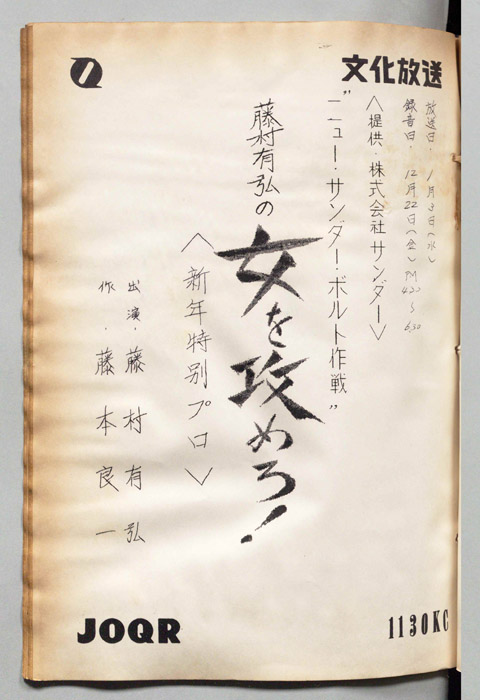 文化放送
放送日. 1月3日(水)
録音日. 12月22日(金) PM 4.20〜6.30
〈提供・株式会社サンダー〉
"ニュー・サンダー・ボルト作戦"
藤村有弘の
女を攻めろ!
〈新年特別プロ〉
出演・藤村有弘
作・藤本良一
JOQR
1130KC